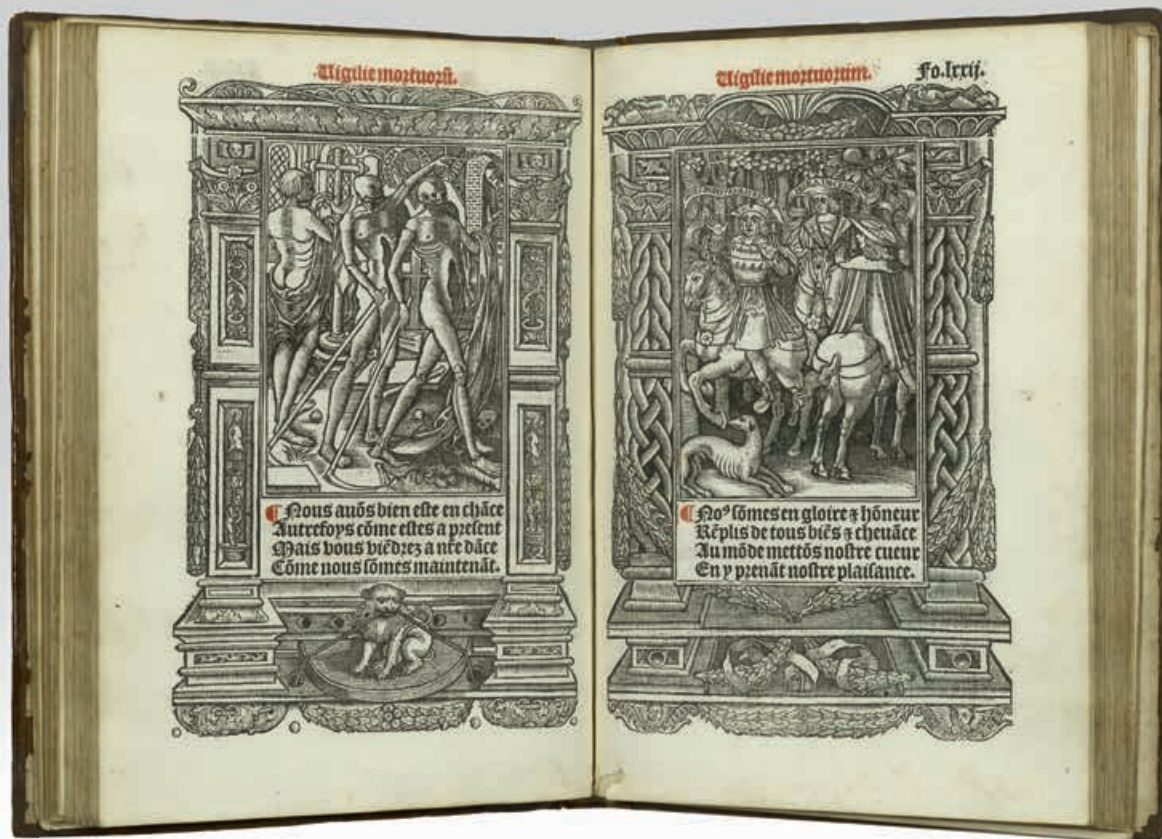 Vigilie mortuorū.
¶ Nous auōs bien este en chāce
Autrefoys cōme estes a present
Mais vous viēdrez a nr̄e dāce
Cōme nous sōmes maintenāt.
Vigilie mortuorum. Fo.lxxij.
¶ Noꝰ sōmes en gloire ⁊ hōneur
Rēplis de tous biēs ⁊ cheuāce
Au mōde mettōs nostre cueur
En y prenāt nostre plaisance.